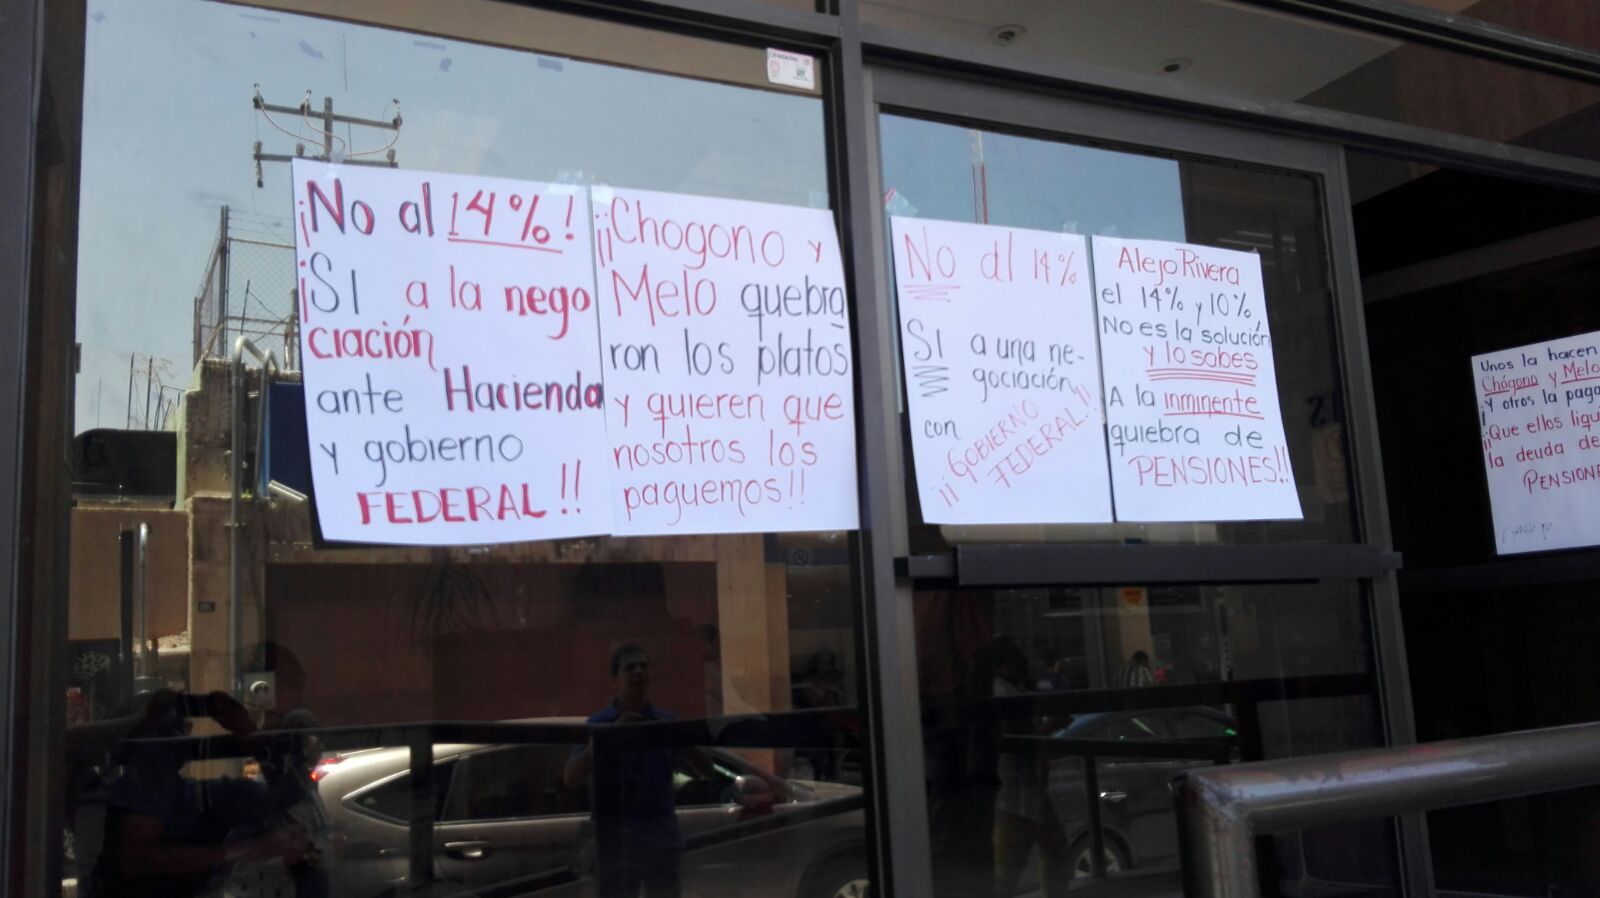 ¡No al 14%!
¡SI a la nego
ciación
ante Hacienda
y gobierno
FEDERAL!!
¡¡Chogono y
Melo quebra
ron los platos
y quieren que
nosotros los
paguemos!!
NO al 14%
SI a una ne-
gociación
con
¡¡GOBIERNO
FEDERAL!!
Alejo Rivera
el 14% y 10%,
No es la solución
y lo sabes
A la inminente
quiebra de
PENSIONES!!
Unos la hacen
Chógono y Melo
¡y otros la paga
¡¡Que ellos liqu
la deuda de
PENSIONE